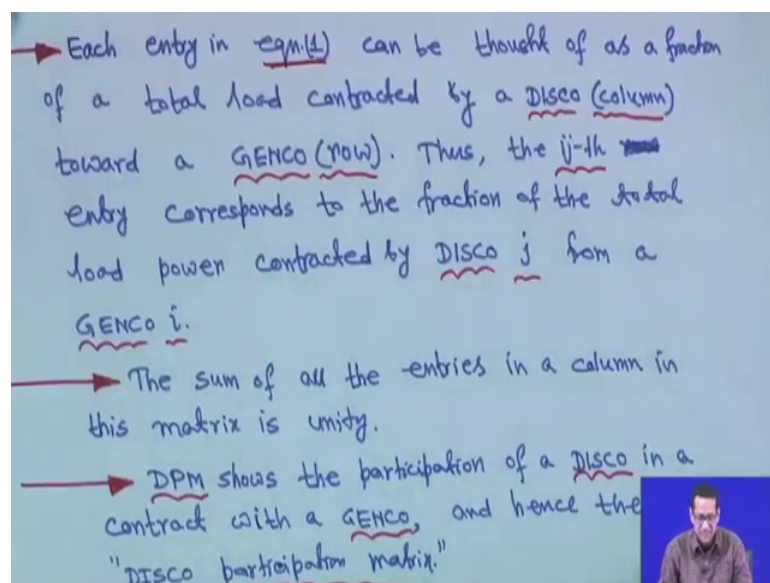 Each entry in eqn.(1) can be thought of as a fraction
of a total load contracted by a DISCO (column)
toward a GENCO (row). Thus, the ij-th
entry corresponds to the fraction of the total
load power contracted by DISCO j from a
GENCO i.
The sum of all the entries in a column in
this matrix is unity.
DPM shows the participation of a DISCO in a
contract with a GENCO, and hence the
"DISCO participation matrix."